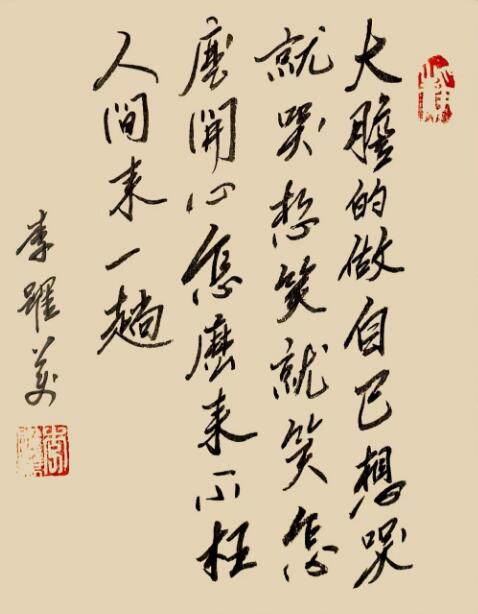 大膽的做自己想哭
就哭想笑就笑怎
麼開心怎麼来不枉
人間来一趟
李躍美